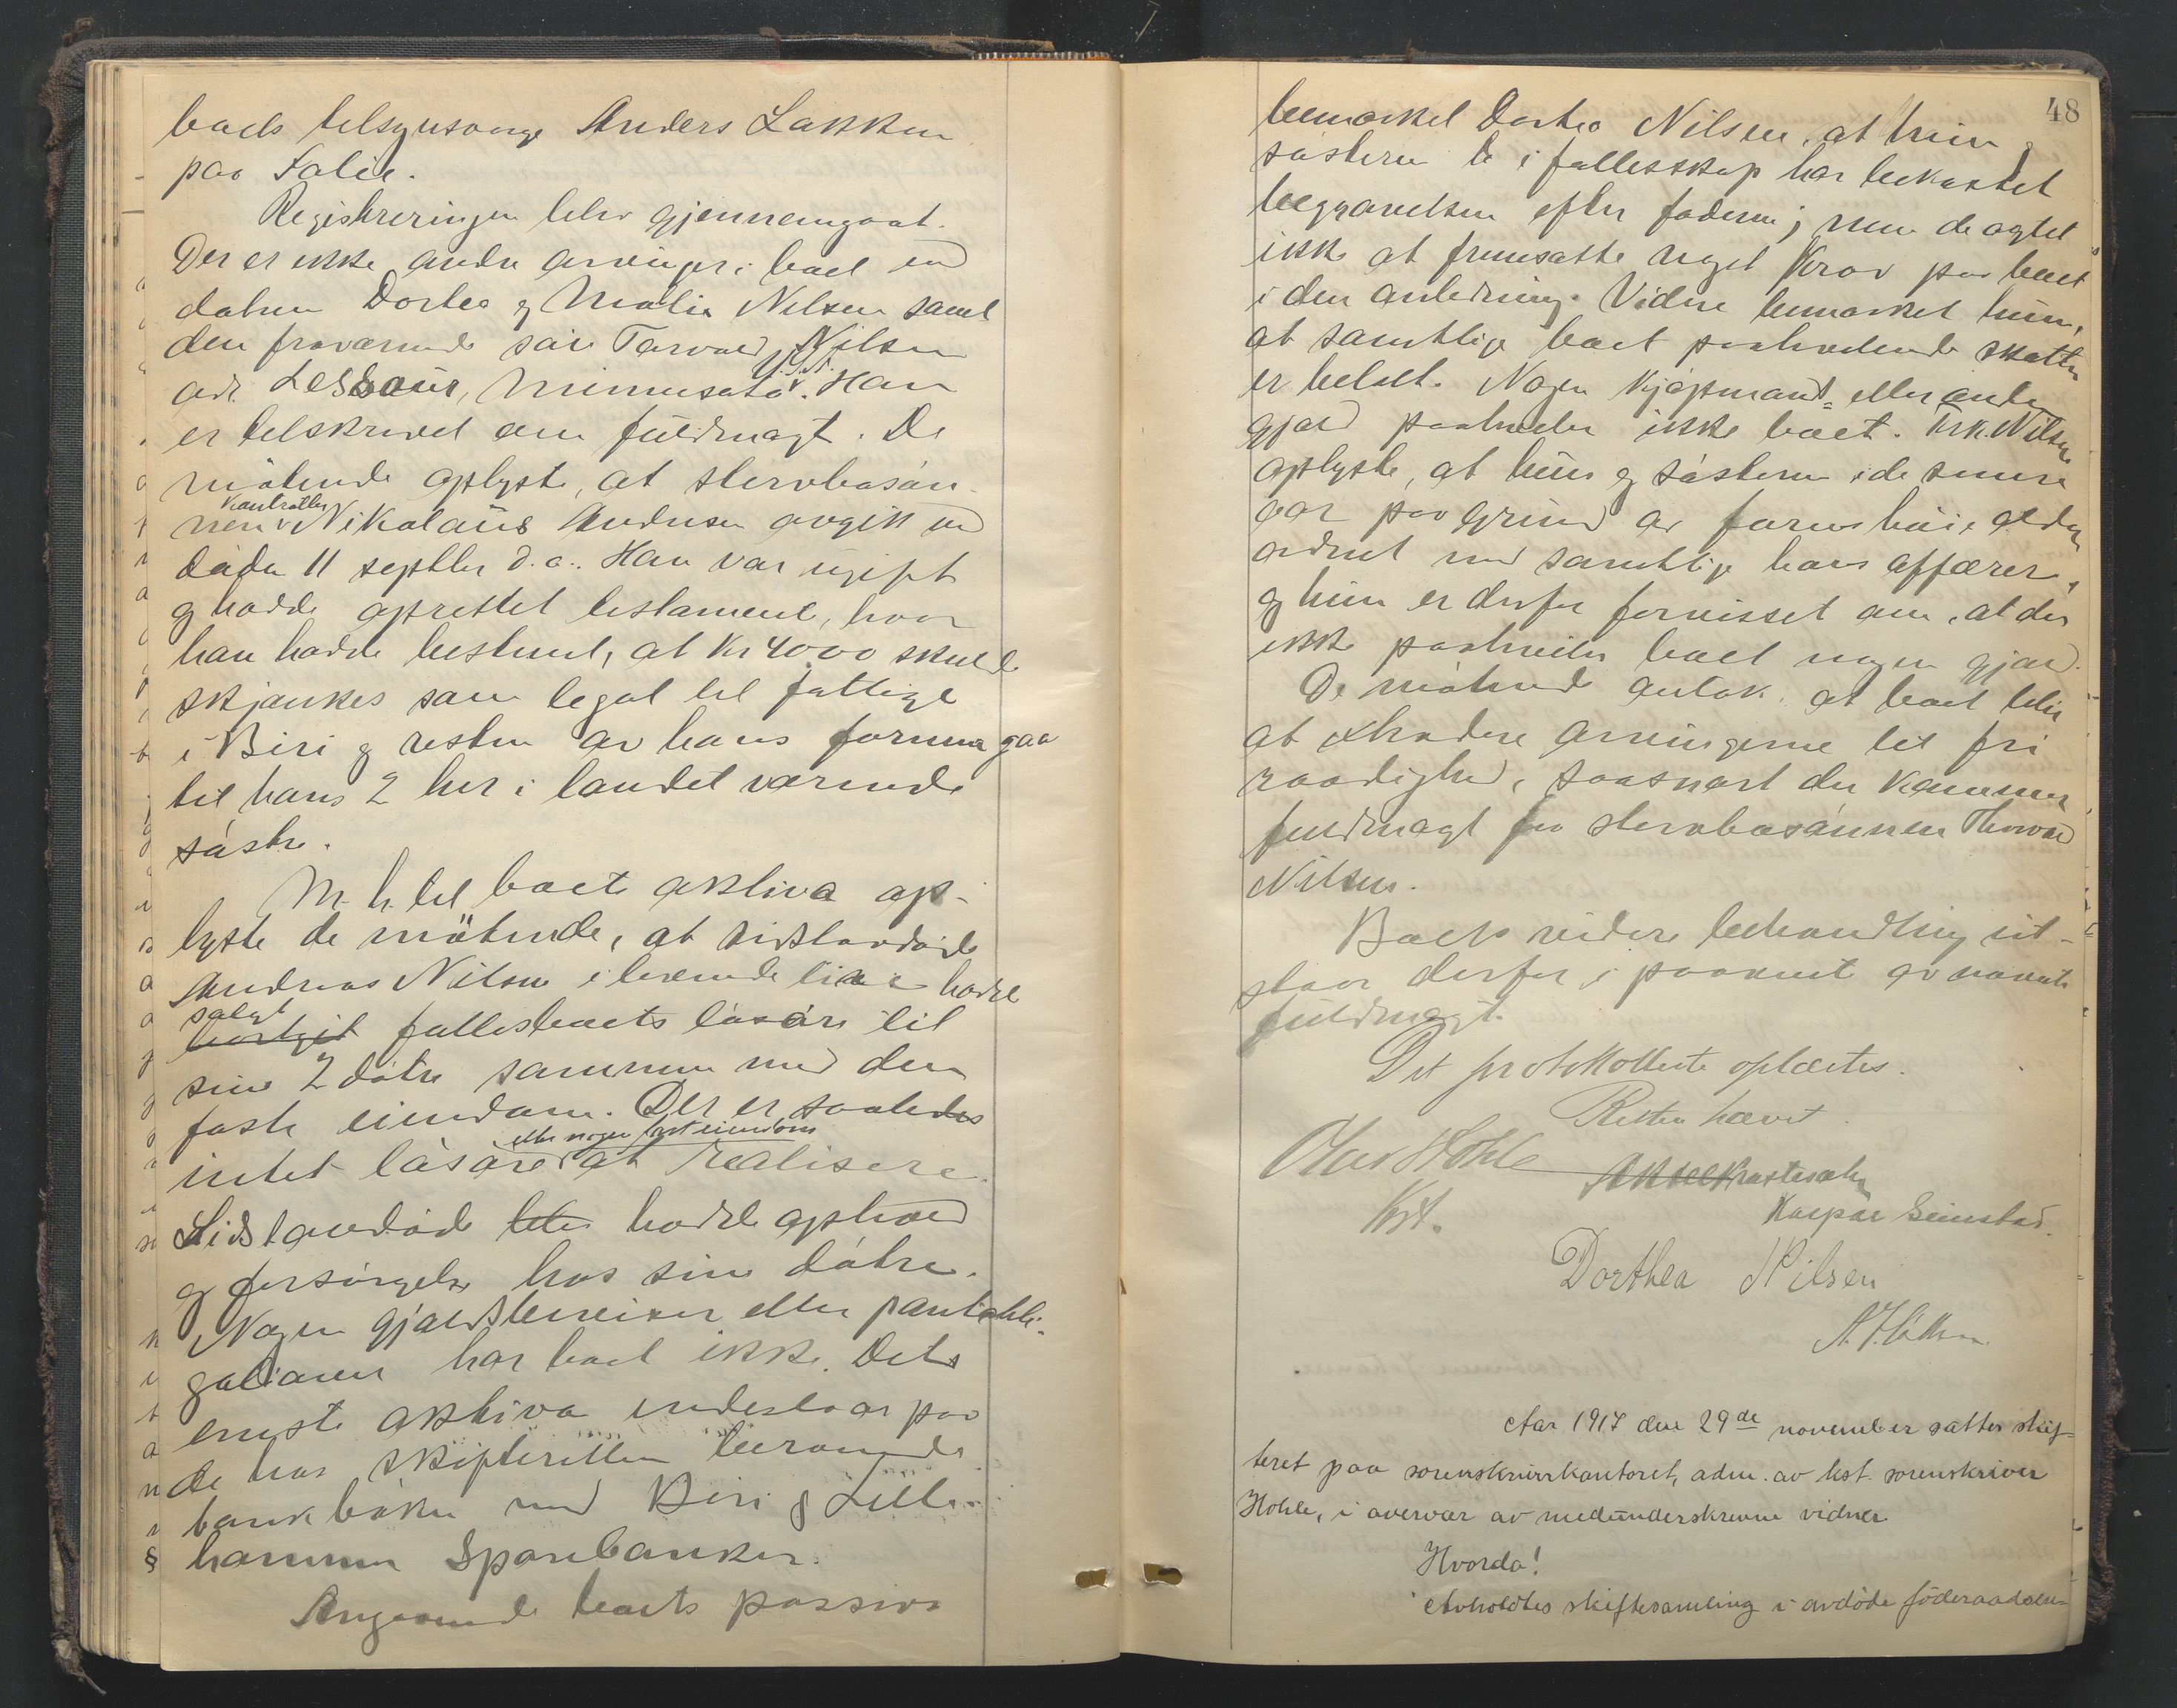 boets tilsynsverge Anders Løkken
paa Løken.
Registreringen blev gjennemgaat.
Der er ikke andre arvinger i boet end
døtrene Dortea og Malia Nilsen samt
den fraværende søn Torvald Nilsen
adr. LeSueur, Minnesota U.S.A. Han
er tilskrevet om fuldmagt. De
møtende oplyste, at stervbosøn-
nen kontrollør Nikolaus Andersen avgik ved
døden 11 septbr d.a. Han var ugift
og hadde oprettet testament, hvor
han hadde bestemt, at kr 4000 skulde
skjænkes som legat til fattige
i Biri og resten av hans formue gaa
til hans 2 her i landet værende
søstre.
M. h. til boets aktiva op-
lyste de møtende, at sidstavdøde
Andreas Nilsen i levende live hadde
solgt bortgit fællesboets løsøre til
sine 2 døtre sammen med den
faste eiendom. Der er saaledes
intet løsøre eller nogen fast eiendom at realisere.
Sidstavdøde blev hadde ophold
og forsørgelse hos sine døtre.
Nogen gjældsbeviser eller pantobli-
gationer har boet ikke. Dets
eneste aktiva indestaar paa
de hos skifteretten beroende
bankbøker med Biri og Lille-
hammer Sparebanker.
Angaaende boets passiva
48
bemerket Dortea Nilsen, at hun og
søsteren i fællesskap har bekostet
begravelsen efter faderen; men de agtet
ikke at fremsætte noget krav paa boet
i den anledning. Videre bemerket hun,
at samtlige boet paahvilende skatter
er betalt. Nogen kjøpmands- eller anden
gjæld paahviler ikke boet. Frk. Nilsen
oplyste, at hun og søsteren i de senere
aar paa grund av farens høie alder
ordnet med samtlige hans affærer,
og hun er derfor forvisset om, at der
ikke paahviler boet nogen gjæld.
De møtende antok, at boet blir
at extradere arvingerne til fri
raadighed, saasnart der kommer
fuldmagt fra stervbosønnen Thorvald
Nilsen.
Boets videre behandling ut-
staar derfor i paavente av nævnte
fuldmagt.
Det protokollerte oplæstes.
Retten hævet.
Olav Hohle
Kst.
Kaspar Seiestad.
Dorthea Nilsen
Aar 1917 den 29de november sattes skif-
teret paa sorenskriverkontoret, adm. av kst. sorenskriver
Hohle, i overvær av medunderskrevne vidner.
Hvorda!
Avholdtes skiftesamling i avdøde föderaads-